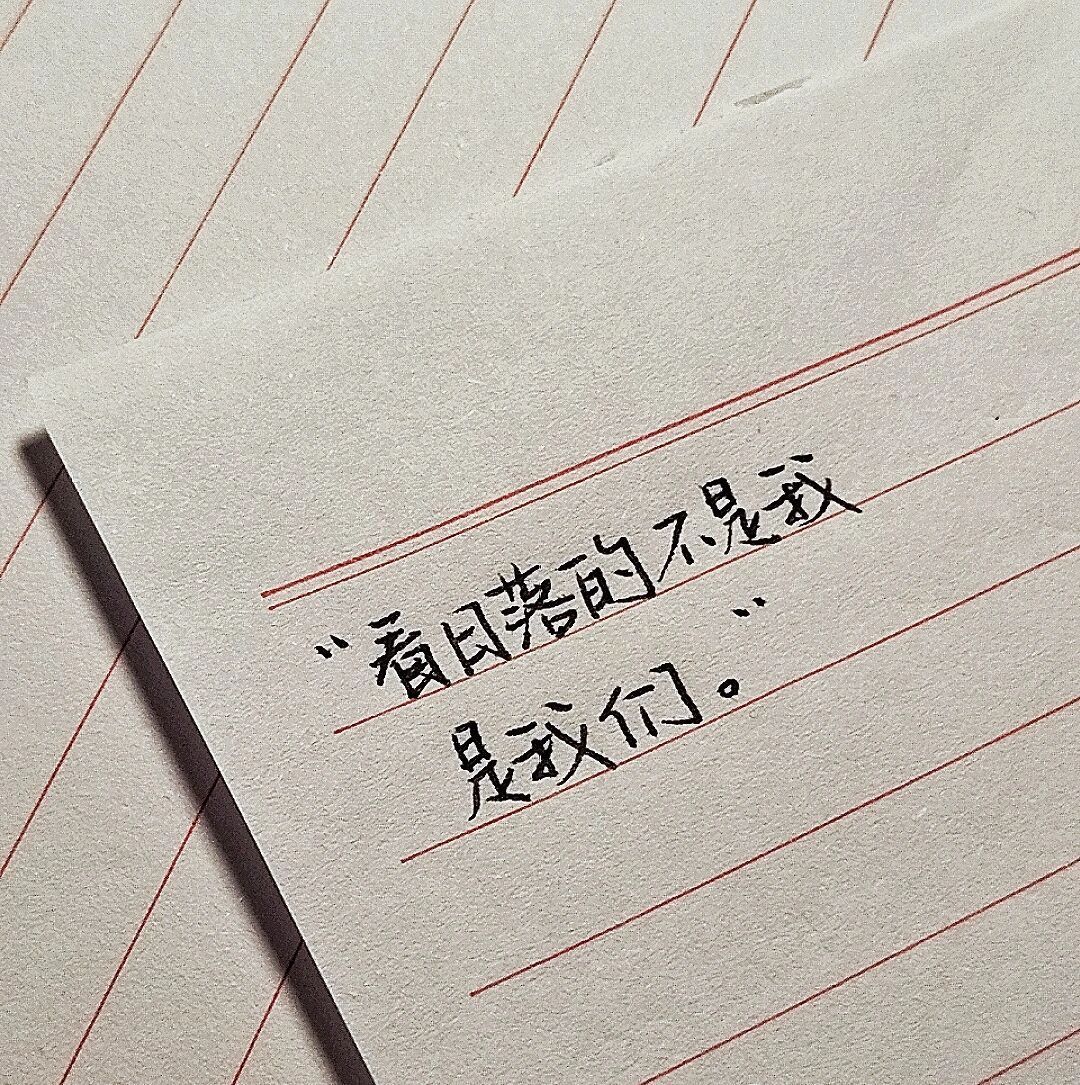 “看日落的不是我
是我们。”